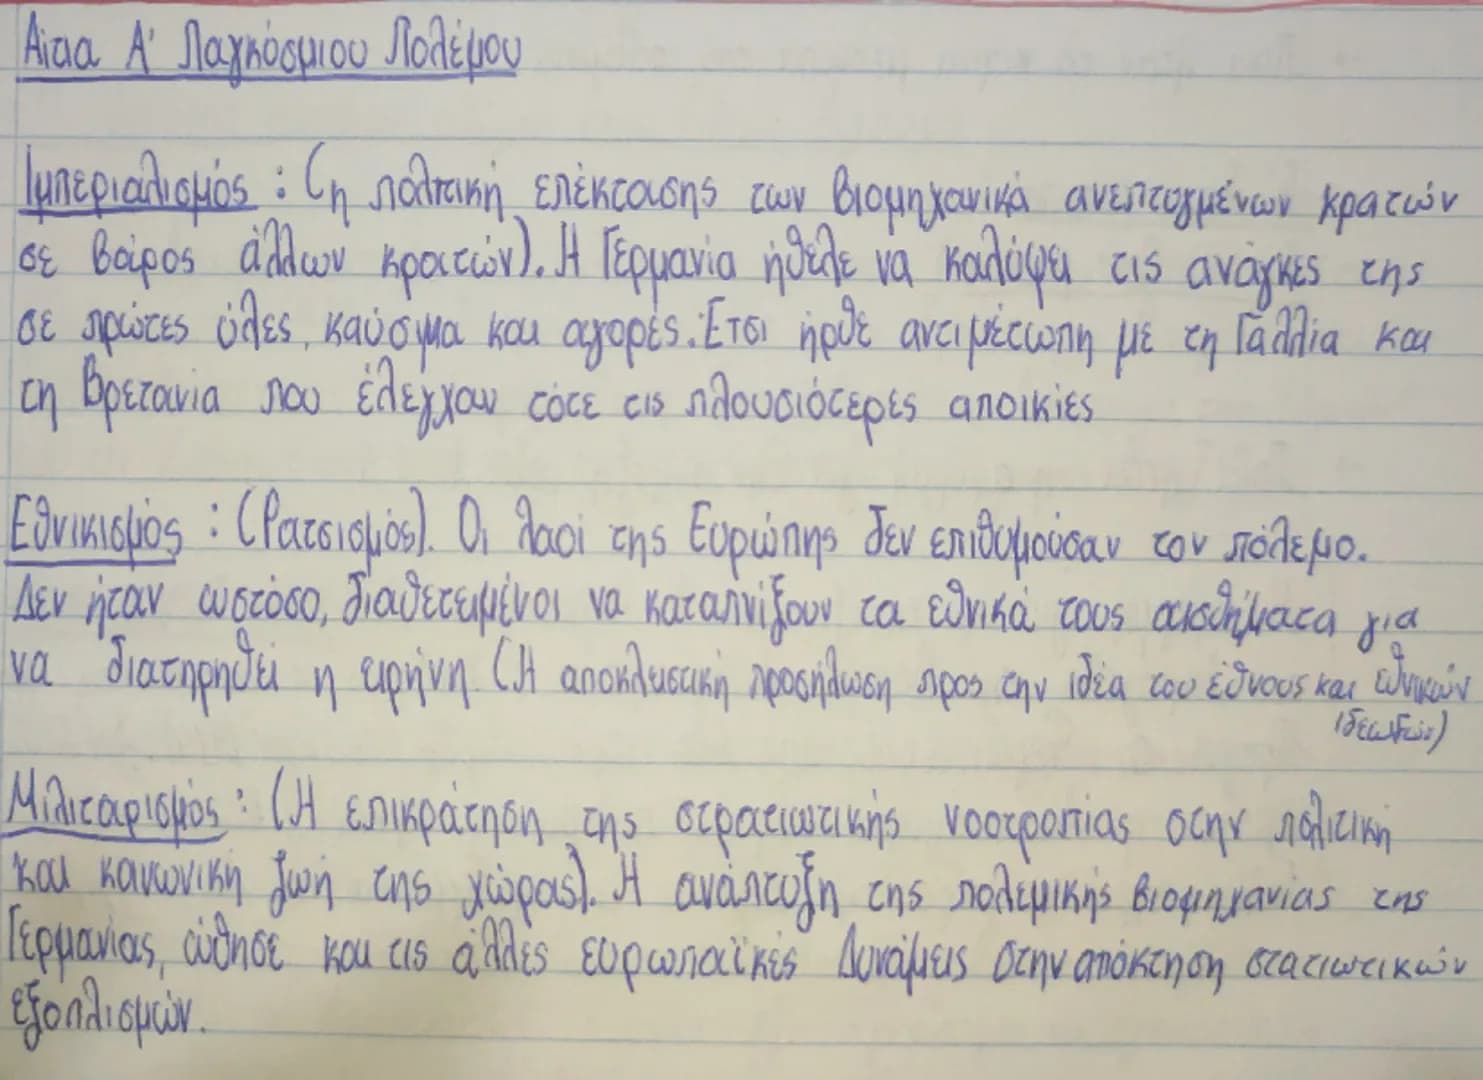 Αίτια Α' Παγκόσμιου Πολέμου
Ιμπεριαλισμός : (η πολιτική επέκτασης των βιομηχανικά ανεπτυγμένων κρατών
σε βάρος άλλων κρατών). Η Γερμανία ήθελε να καλύψει τις ανάγκες της
σε πρώτες ύλες, καύσιμα και αγορές. Έτσι ήρθε αντιμέτωπη με τη Γαλλία και
τη Βρετανία που έλεγχαν τότε τις πλουσιότερες αποικίες
Εθνικισμός : (Ρατσισμός). Οι λαοί της Ευρώπης δεν επιθυμούσαν τον πόλεμο.
Δεν ήταν ωστόσο, διαθετειμένοι να καταπνίξουν τα εθνικά τους αισθήματα για
να διατηρηθεί η ειρήνη. (Η αποκλειστική προσήλωση προς την ιδέα του έθνους και εθνικών
ιδεωδών)
Μιλιταρισμός : (Η επικράτηση της στρατιωτικής νοοτροπίας στην πολιτική
και κανωνική ζωή της χώρας). Η ανάπτυξη της πολεμικής βιομηχανίας της
Γερμανίας, ώθησε και τις άλλες ευρωπαϊκές Δυνάμεις στην απόκτηση στατιωτικών
εξοπλισμών.